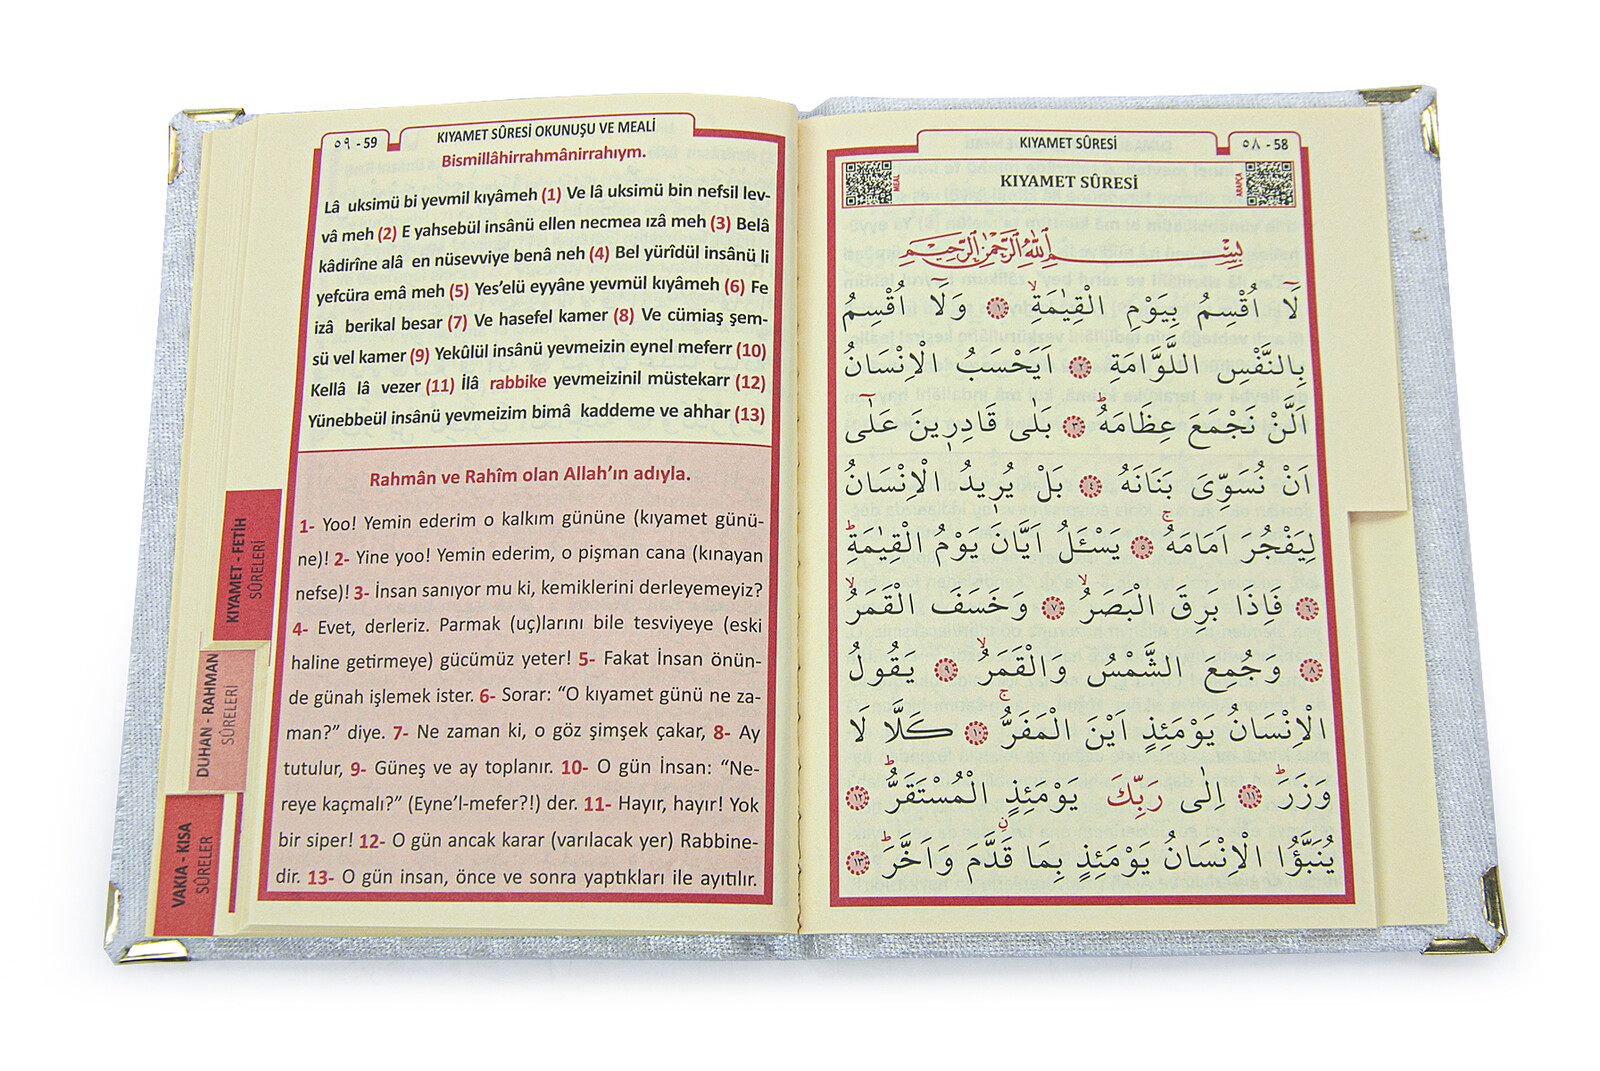 KIYAMET SÛRESİ
٥٨ - 58
MEAL
KIYAMET SÛRESİ
ARAPÇA
بِسْمِ اللّٰهِ الرَّحْمٰنِ الرَّحِيمِ
لَٓا اُقْسِمُ بِيَوْمِ الْقِيٰمَةِۙ ﴿١﴾ وَلَٓا اُقْسِمُ
بِالنَّفْسِ اللَّوَّامَةِ ﴿٢﴾ اَيَحْسَبُ الْاِنْسَانُ
اَلَّنْ نَجْمَعَ عِظَامَهُۜ ﴿٣﴾ بَلٰى قَادِر۪ينَ عَلٰٓى
اَنْ نُسَوِّيَ بَنَانَهُ ﴿٤﴾ بَلْ يُر۪يدُ الْاِنْسَانُ
لِيَفْجُرَ اَمَامَهُۚ ﴿٥﴾ يَسْـَٔلُ اَيَّانَ يَوْمُ الْقِيٰمَةِۜ
﴿٦﴾ فَاِذَا بَرِقَ الْبَصَرُۙ ﴿٧﴾ وَخَسَفَ الْقَمَرُۙ
﴿٨﴾ وَجُمِعَ الشَّمْسُ وَالْقَمَرُۙ ﴿٩﴾ يَقُولُ
الْاِنْسَانُ يَوْمَئِذٍ اَيْنَ الْمَفَرُّۚ ﴿١٠﴾ كَلَّا لَا
وَزَرَۜ ﴿١١﴾ اِلٰى رَبِّكَ يَوْمَئِذٍۨ الْمُسْتَقَرُّۜ ﴿١٢﴾
يُنَبَّؤُا الْاِنْسَانُ يَوْمَئِذٍ بِمَا قَدَّمَ وَاَخَّرَۜ ﴿١٣﴾
٥٩ - 59
KIYAMET SÛRESİ OKUNUŞU VE MEALİ
Bismillâhirrahmânirrahıym.
Lâ uksimü bi yevmil kıyâmeh (1) Ve lâ uksimü bin nefsil lev-
vâ meh (2) E yahsebül insânü ellen necmea ızâ meh (3) Belâ
kâdirîne alâ en nüsevviye benâ neh (4) Bel yürîdül insânü li
yefcüra emâ meh (5) Yes'elü eyyâne yevmül kıyâmeh (6) Fe
izâ berikal besar (7) Ve hasefel kamer (8) Ve cümiaş şem-
sü vel kamer (9) Yekûlül insânü yevmeizin eynel meferr (10)
Kellâ lâ vezer (11) İlâ rabbike yevmeizinil müstekarr (12)
Yünebbeül insânü yevmeizim bimâ kaddeme ve ahhar (13)
Rahmân ve Rahîm olan Allah'ın adıyla.
1- Yoo! Yemin ederim o kalkım gününe (kıyamet günü-
ne)! 2- Yine yoo! Yemin ederim, o pişman cana (kınayan
nefse)! 3- İnsan sanıyor mu ki, kemiklerini derleyemeyiz?
4- Evet, derleriz. Parmak (uç)larını bile tesviyeye (eski
haline getirmeye) gücümüz yeter! 5- Fakat İnsan önün-
de günah işlemek ister. 6- Sorar: “O kıyamet günü ne za-
man?” diye. 7- Ne zaman ki, o göz şimşek çakar, 8- Ay
tutulur, 9- Güneş ve ay toplanır. 10- O gün İnsan: “Ne-
reye kaçmalı?” (Eyne'l-mefer?!) der. 11- Hayır, hayır! Yok
bir siper! 12- O gün ancak karar (varılacak yer) Rabbine-
dir. 13- O gün insan, önce ve sonra yaptıkları ile ayıtılır.
KIYAMET - FETİH
SÛRELERİ
DUHAN - RAHMAN
SÛRELERİ
VAKIA - KISA
SÛRELER